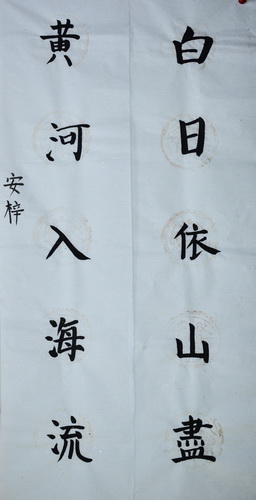 白日依山盡
黄河入海流
安梓